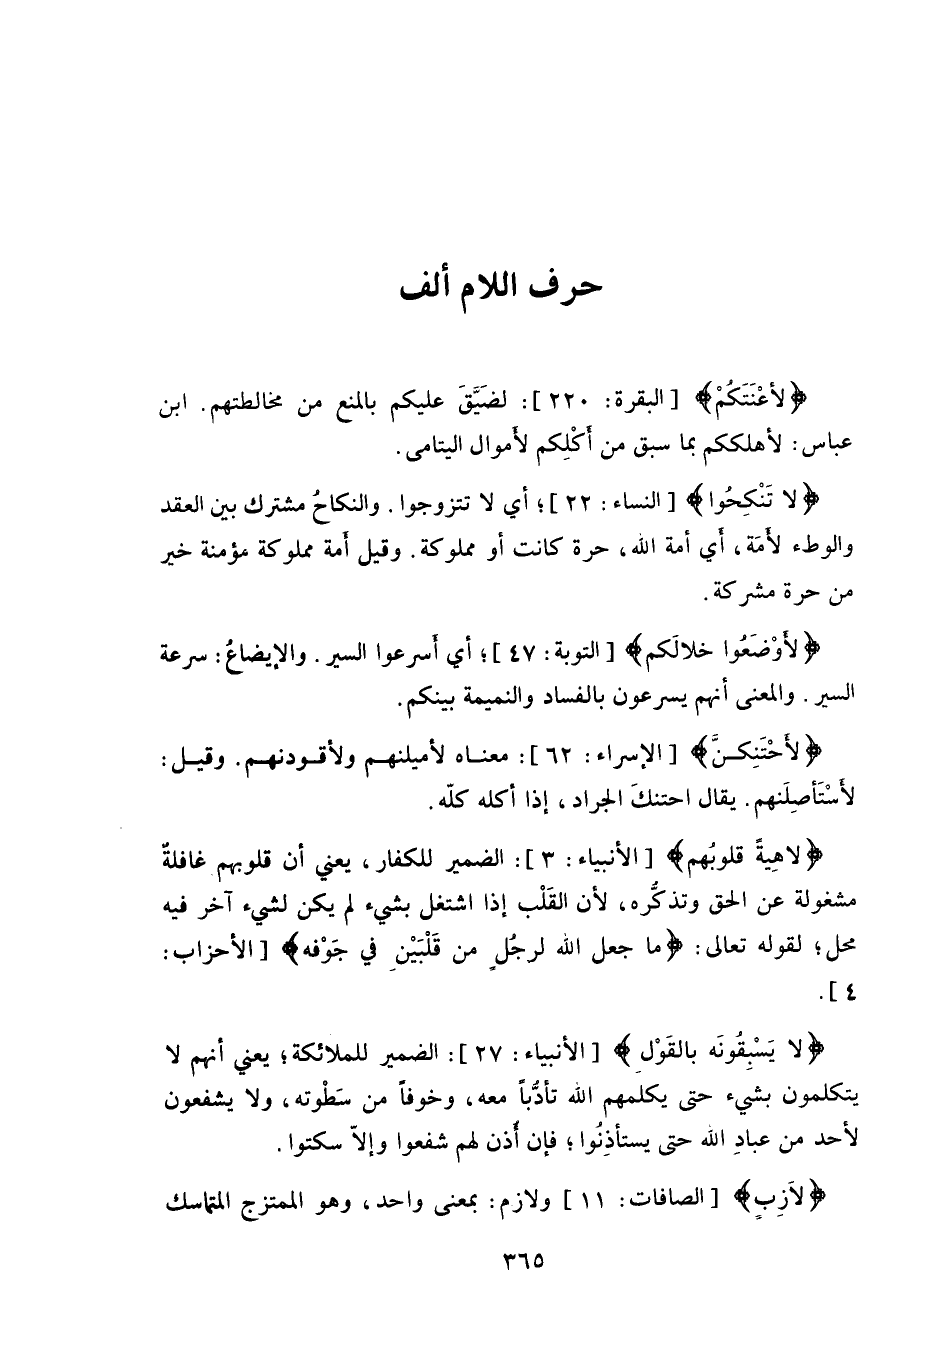 حرف اللام ألف
﴿لأعْنَتَكُمْ﴾ [ البقرة: ٢٢٠ ]: لضَيَّقَ عليكم بالمنع من مخالطتهم. ابن
عباس: لأهلككم بما سبق من أَكْلِكم لأموال اليتامى.
﴿لا تَنْكِحُوا﴾ [ النساء: ٢٢ ]؛ أي لا تتزوجوا. والنكاحُ مشترك بين العقد
والوطء لأَمَة، أَي أمة الله، حرة كانت أو مملوكة. وقيل أَمة مملوكة مؤمنة خير
من حرة مشركة.
﴿لأَوْضَعُوا خلالَكم﴾ [ التوبة: ٤٧ ]؛ أي أَسرعوا السير. والإيضاعُ: سرعة
السير. والمعنى أنهم يسرعون بالفساد والنميمة بينكم.
﴿لأَحْتَنِكـنَّ﴾ [ الإسراء: ٦٢ ]: معنـاه لأميلنهـم ولأقـودنهـم. وقيـل:
لأَسْتَأصِلَنهم. يقال احتنكَ الجراد، إذا أكله كلّه.
﴿لاهِيةً قلوبُهم﴾ [ الأنبياء: ٣ ]: الضمير للكفار، يعني أن قلوبهم غافلةٌ
مشغولة عن الحق وتذكُّره، لأن القَلْب إذا اشتغل بشيء لم يكن لشيء آخر فيه
محل؛ لقوله تعالى: ﴿ما جعل الله لرجُلٍ من قَلْبَيْنِ في جَوْفه﴾ [ الأحزاب:
٤ ].
﴿لا يَسْبِقُونَه بالقَوْلِ﴾ [ الأنبياء: ٢٧ ]: الضمير للملائكة؛ يعني أنهم لا
يتكلمون بشيء حتى يكلمهم الله تأدُّباً معه، وخوفاً من سَطْوته، ولا يشفعون
لأحد من عبادِ الله حتى يستأذِنُوا؛ فإن أُذن لهم شفعوا وإلاّ سكتوا.
﴿لاَزِبٍ﴾ [ الصافات: ١١ ] ولازم: بمعنى واحد، وهو الممتزج المتماسك
٣٦٥